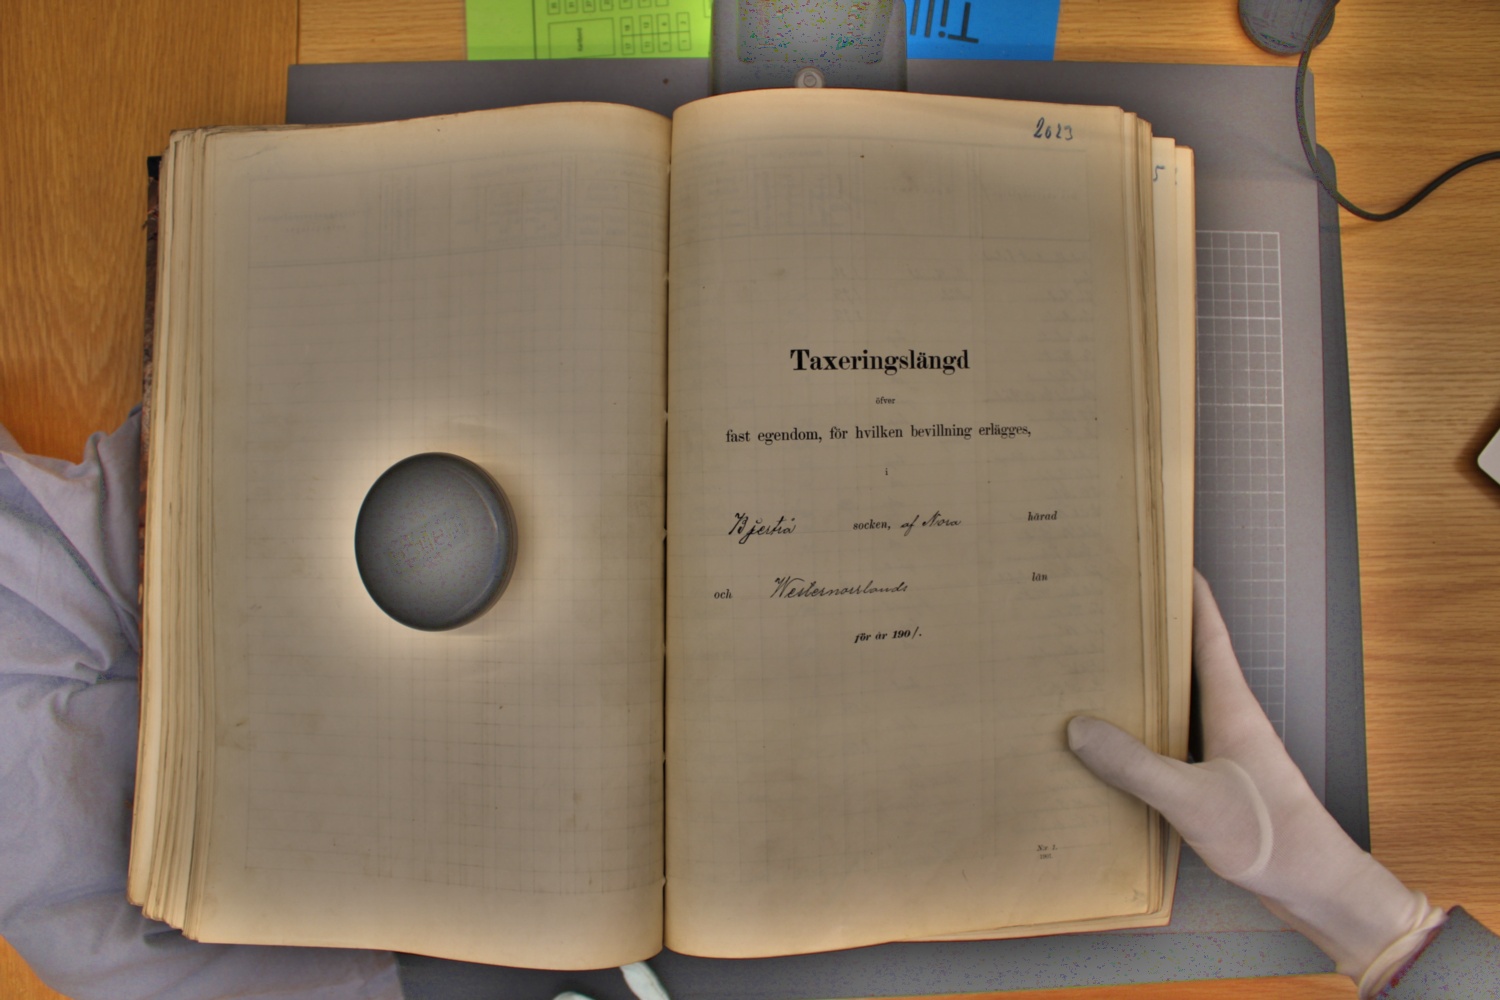 Till
2023
5
Taxeringslängd
öfver
fast egendom, för hvilken bevillning erlägges,
i
Bjertrå socken, af Nora härad
och Westernorrlands län
för år 190/.
No 1.